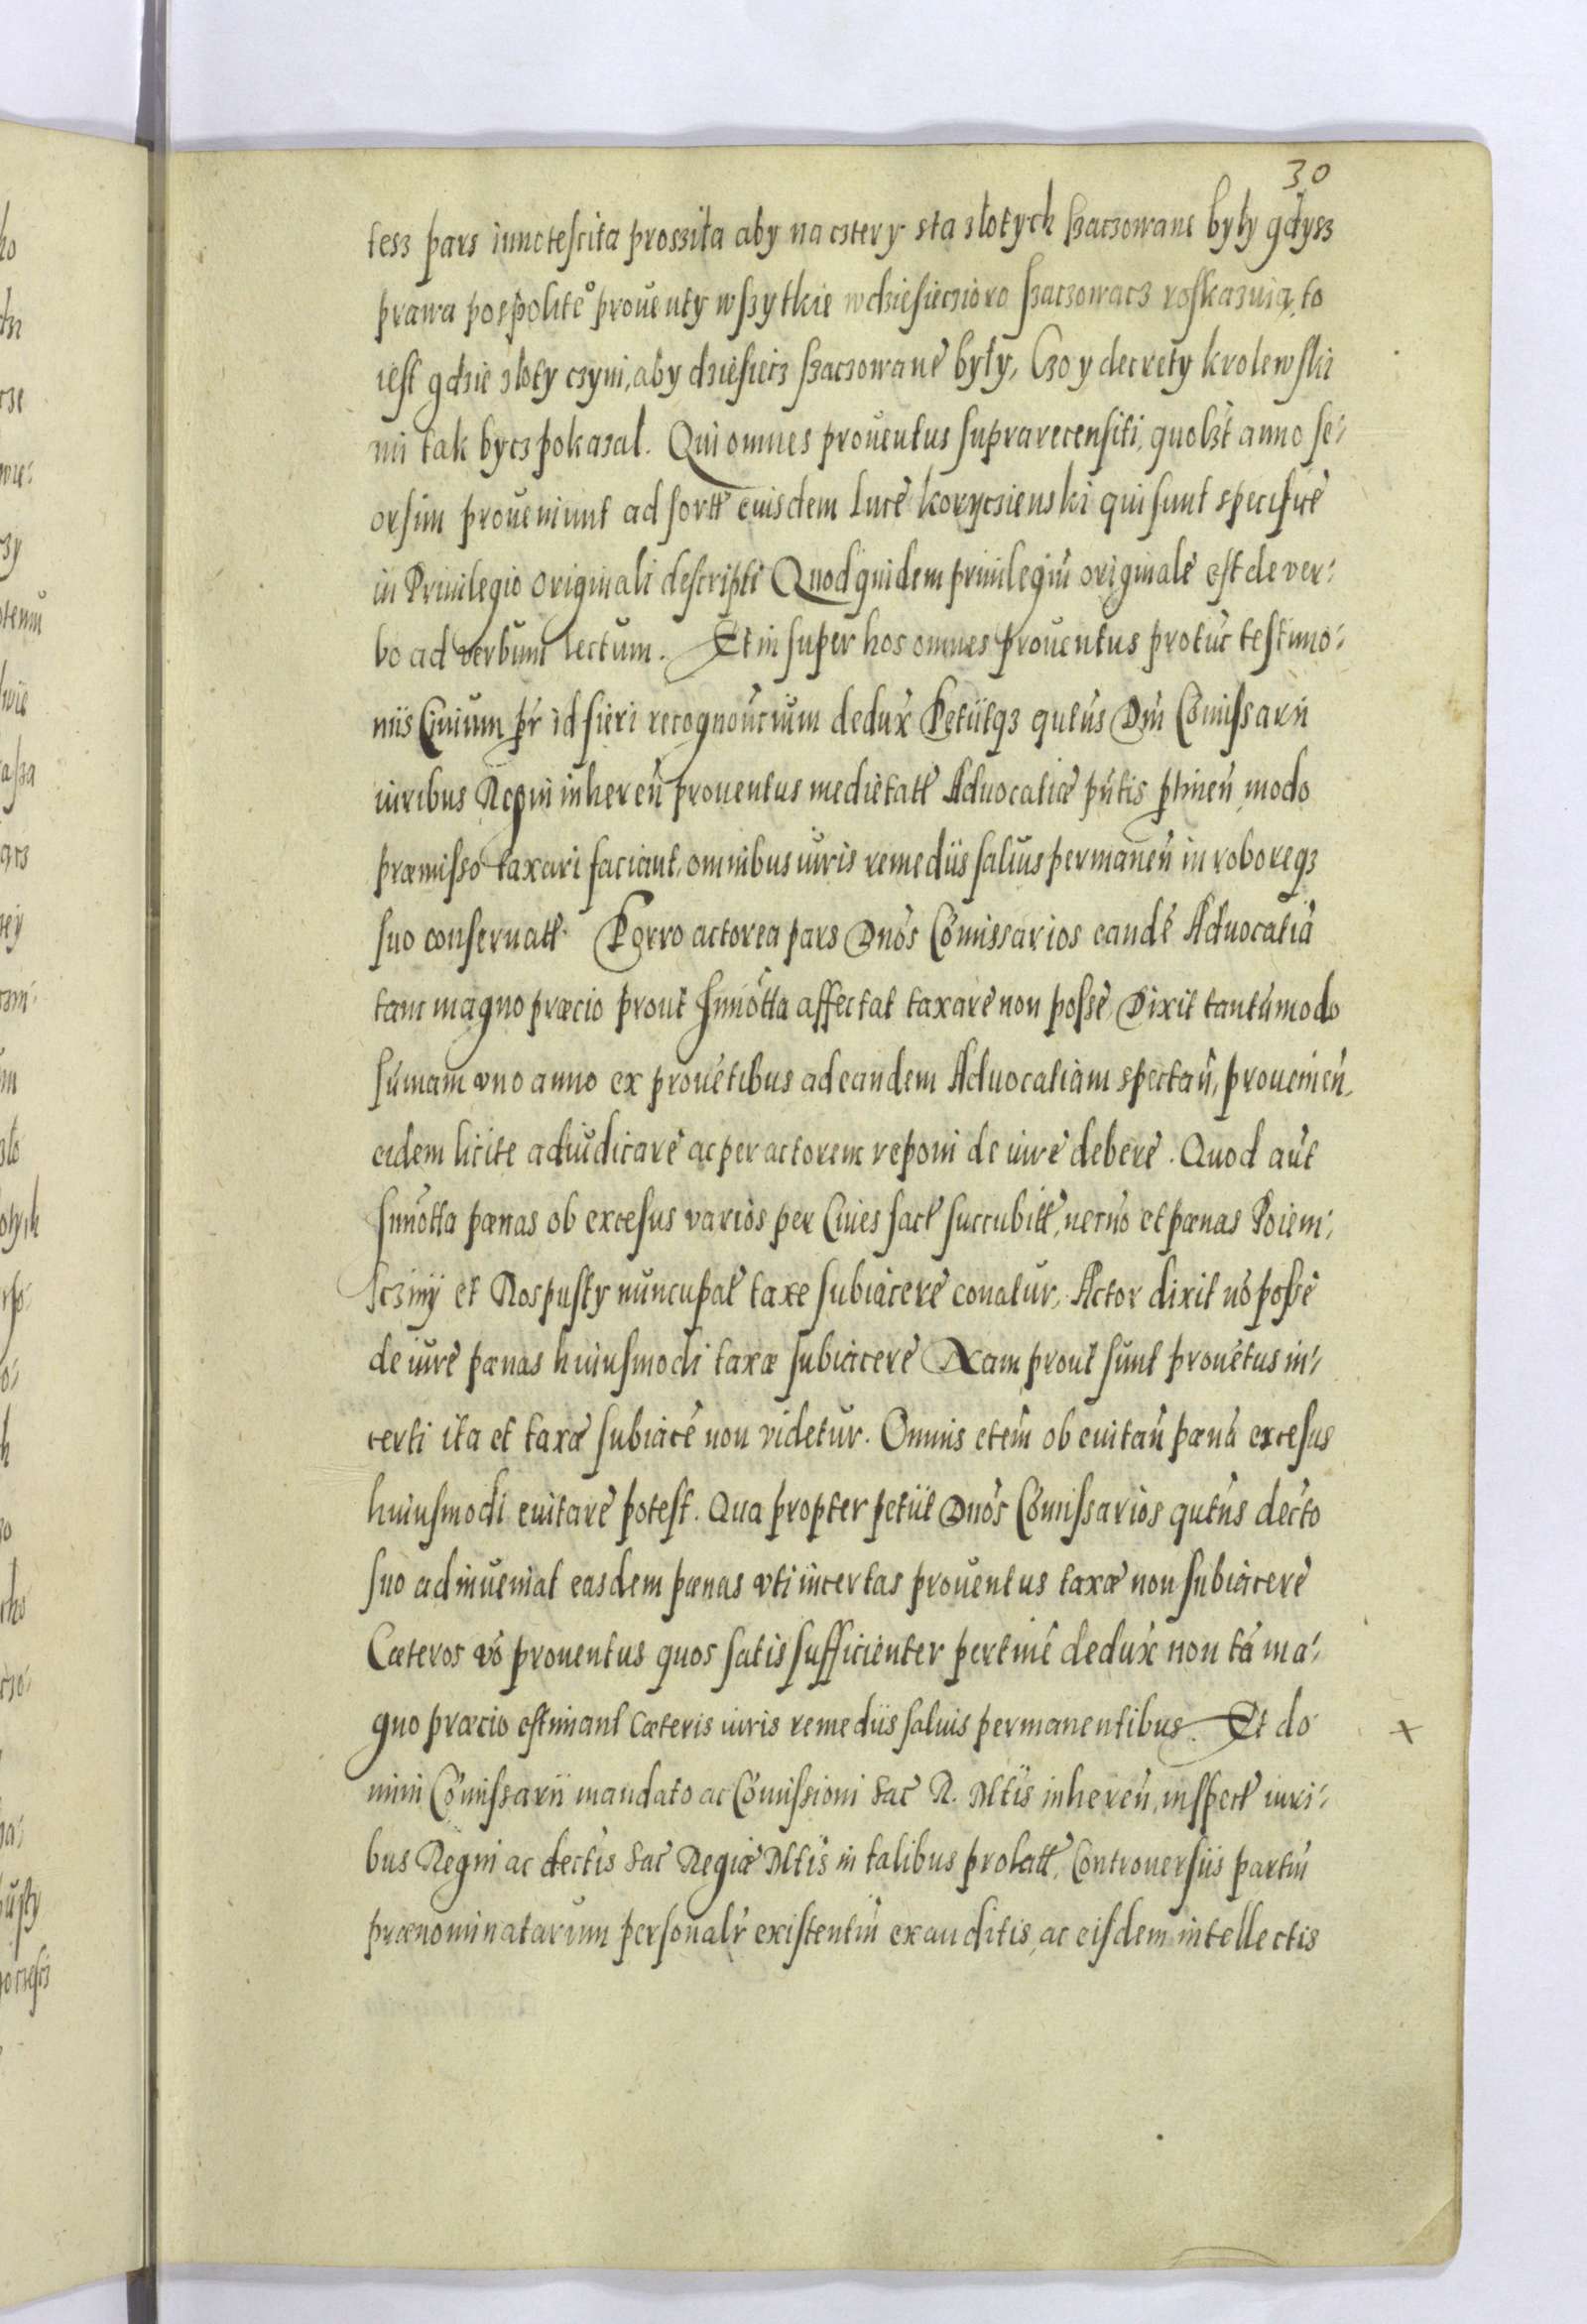 30
tesz pars innotescita proszila aby na cztery sta złotych szaczowane były gdysz
prawa pospolite° prouenty wszytkie wdziesieczioro szaczowacz roskazuią, to
iest gdzie złoty czyni, aby dziesiecz szaczowane były, Czo y decrety krolewski
mi tak bycz pokazal. Qui omnes prouentus suprarecensiti, quolzt anno se-
orsim proueniunt ad sortē eiusdem Lucē koryczienski qui sunt specifice
in Priuilegio originali descripti Quodquidem priuilegiū originale est de ver-
bo ad verbum lectum. Et in super hos omnes prouentus protūc testimo-
niis Ciuium pr̄ id fieri recognoūcium dedux̄ Petiitqз qutūs Dn̄i Cōmissarii
iuribus Regni inheren̄ prouentus medietatē Aduocatiæ pn̄tis ptinen̄ modo
præmisso taxari faciant, omnibus iuris remediis saluis permanen̄ in roboreqз
suo conseruatē. Porro actorea pars Dn̄os Cōmissarios eandē Aduocatiā
tam magno præcio prout Innōtta affectat taxare non posse, Dixit tantūmodo
sūmam vno anno ex prouētibus ad eandem Aduocatiam spectan̄, prouenien̄
eidem licite adiudicare ac per actorem reponi de iure debere. Quod aūt
Innōtta pænas ob excesus varios per Ciues factē succubitē, necnō et pænas Poiem-
sczinÿ et Rospusty nuncupatē taxe subiacere conatur, Actor dixit nō posse
de iure pænas huiusmodi taxæ subiacere Nam prout sunt prouētus in-
certi ita et taxæ subiacē non videtur. Omnis etem̄ ob euitan̄ pænā excesus
huiusmodi euitare potest. Qua propter petiit Dn̄os Cōmissarios qutūs decto
suo adinueniat easdem pænas vti incertas prouentus taxæ non subiacere
Cæteros vō prouentus quos satis sufficienter pertinē dedux̄ non tā ma-
gno præcio estimant Cæteris iuris remediis saluis permanentibus. Et do
mini Cōmissarii mandato ac Cōmissioni Sac̄ R. Mtis inheren̄, inspectē iuri-
bus Regni ac dectis Sac̄ Regiæ Mtis in talibus prolatē, Controuersiis partiū
prænominatarum personalr̄ existentiū exauditis, ac eisdem intellectis